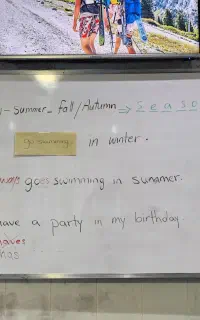 - Summer - Fall/Autumn → S e a s o
go swimming in winter.
goes swimming in summer.
have a party in my birthday.
has